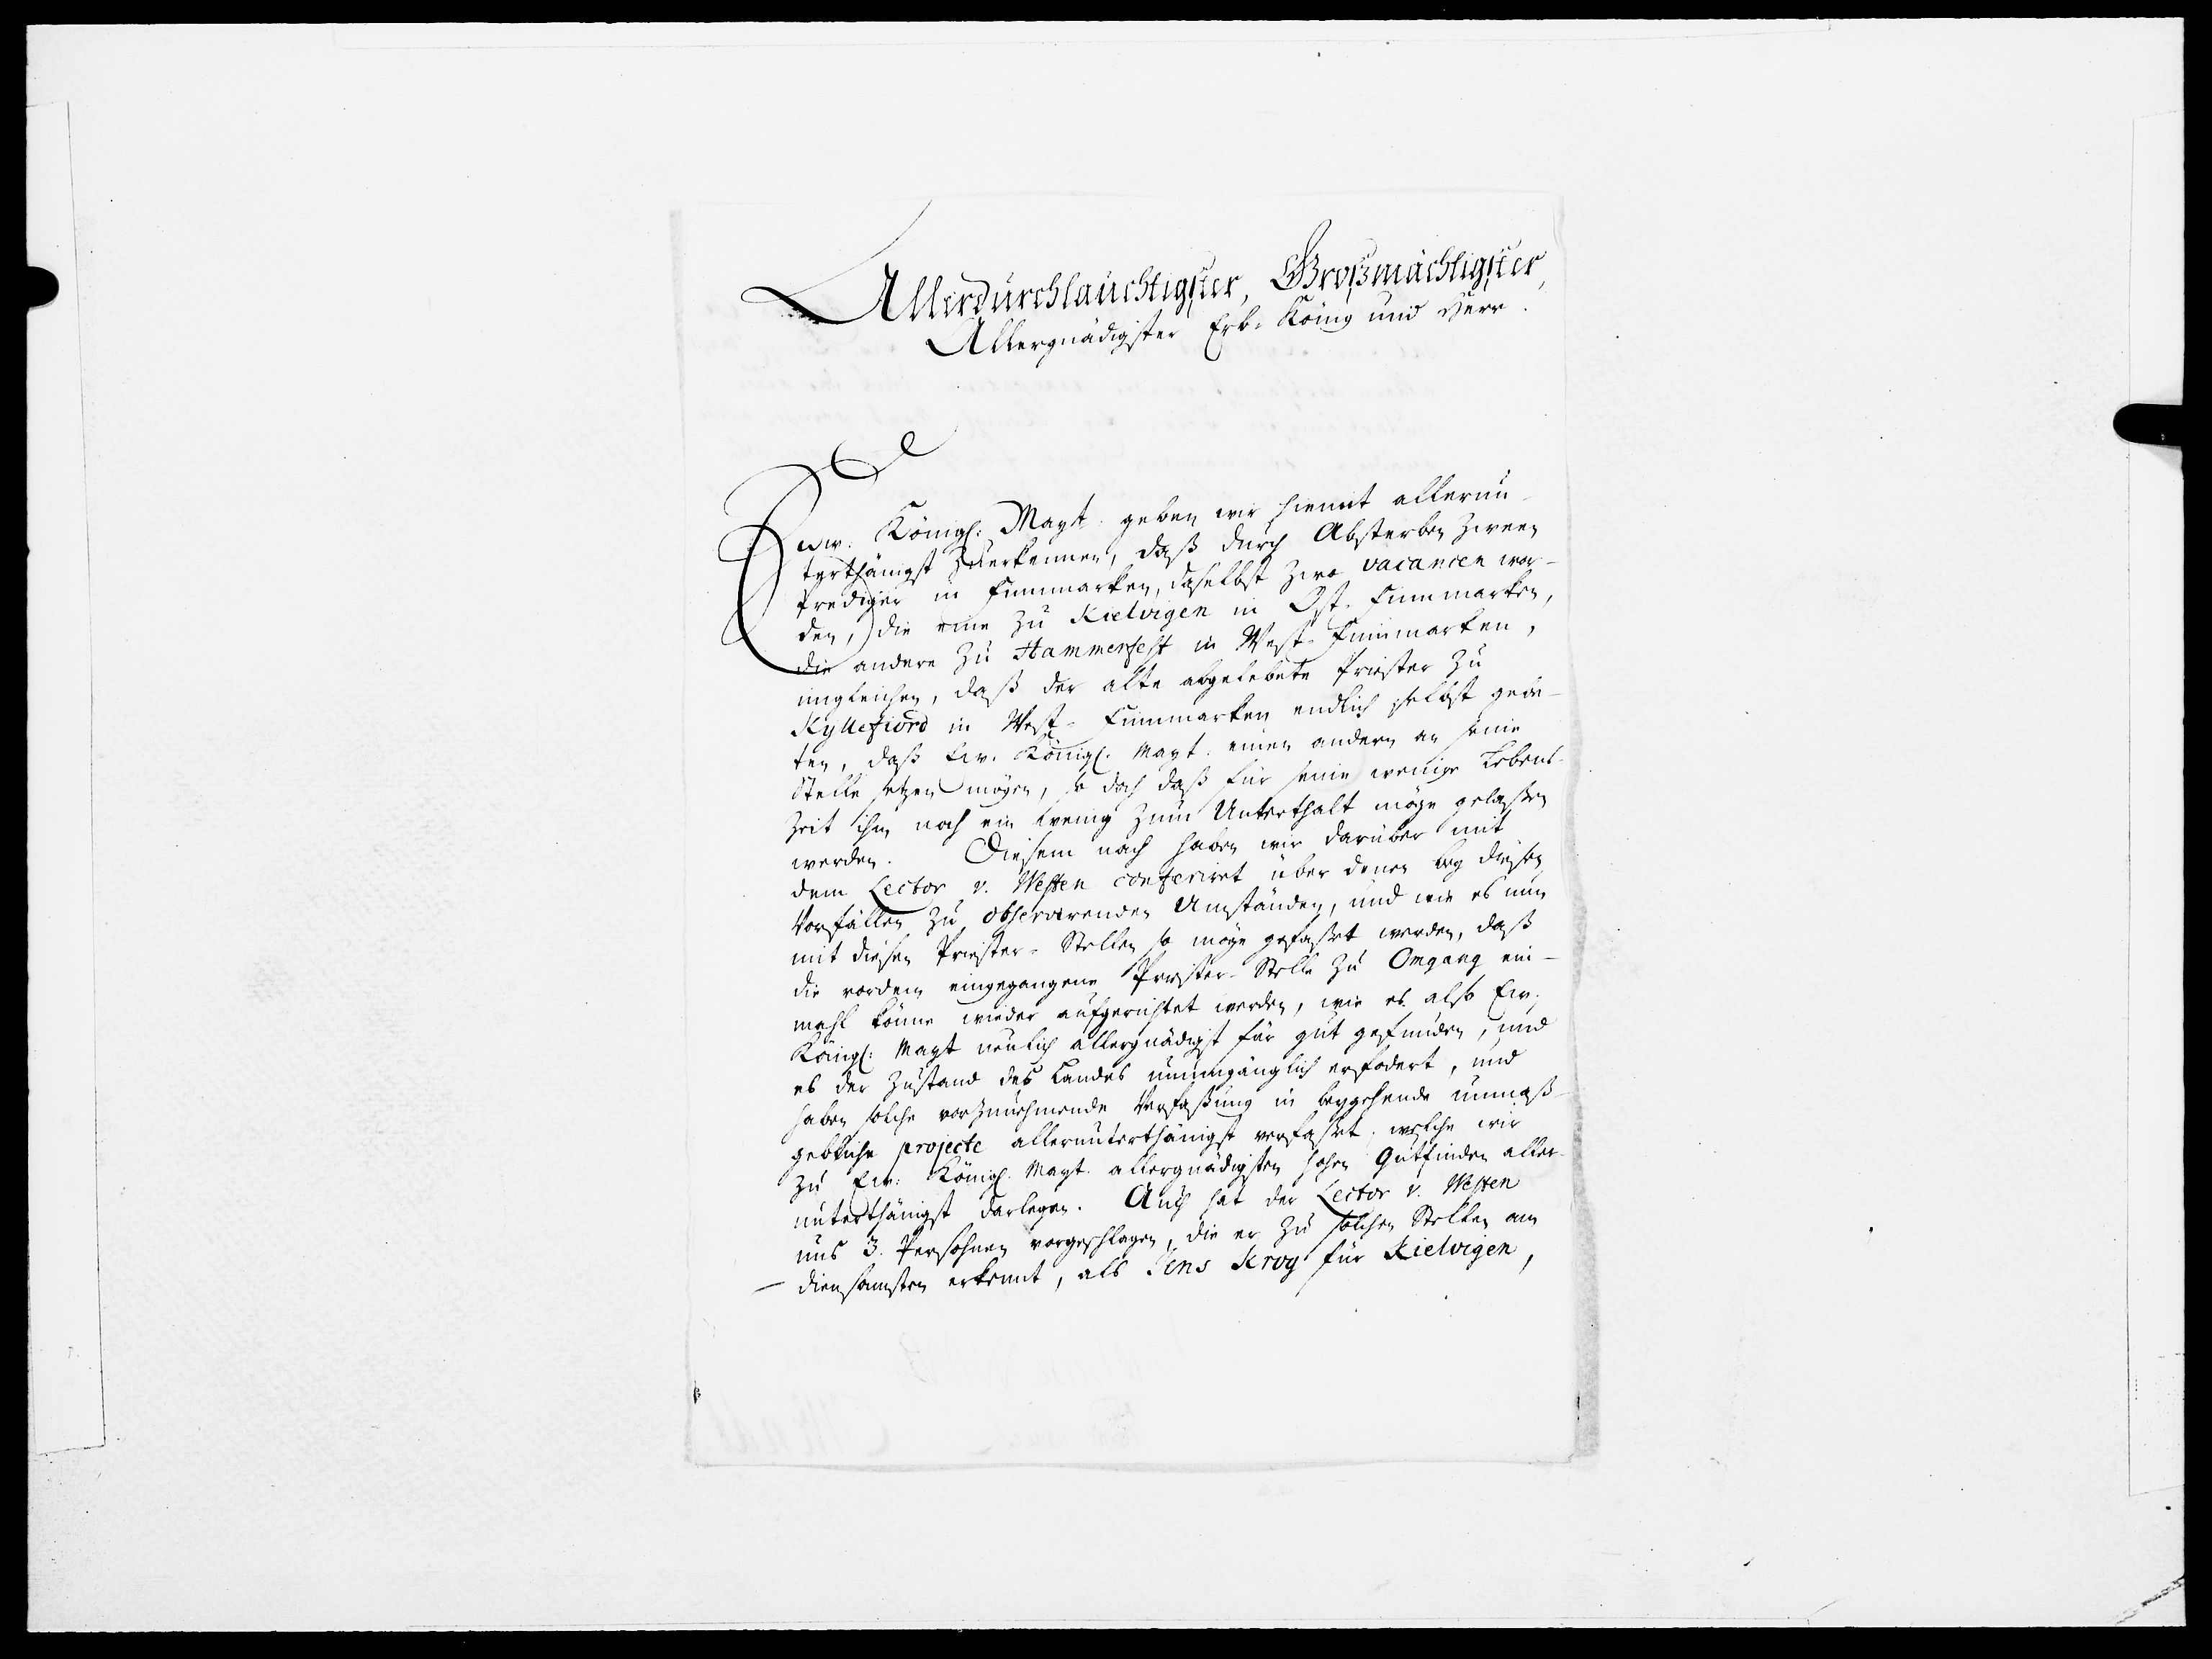 Allerdurchlauchtigster, Großmächtigster,
Allergnädigster Erb-König und Herr.
Euw. Königl: Mayt. geben wir hiemit allerun-
terthänigst zuerkennen, daß durch Absterben zween
Prediger in Finnmarken, daselbst zwo vacancen wor-
den, die eine zu Kielvigen in Ost-Finnmarken,
die andere zu Hammerfest in West-Finnmarken,
imgleichen, daß der alte abgelebete Priester zu
Kyllefiord in West-Finnmarken endlich selbst gebe-
ten, daß Ew. Königl. Mayt. einen andern an seine
Stelle setzen mögen, so doch daß für seine wenige Lebens-
Zeit ihm noch ein wenig zum Unterthalt möge gelaßen
werden. Diesem nach haben wir darüber mit
dem Lector v. Westen conferiret über denen bey diesen
Vorfällen zu observirenden Umständen, und wie es nun
mit diesen Priester-Stellen so möge gefaßet werden, daß
die vordem eingegangene Priester-Stelle zu Omgang ein-
mahl könne wieder aufgerichtet werden, wie es also Ew.
Königl: Mayt neulich allergnädigst für gut gefunden, und
es der Zustand des Landes unumgänglich erfodert, und
haben solche vorzunehmende Verfaßung in beygehende unmaß-
gebliche projecte allerunterthänigst verfaßet, welche wir
zu Ew: Königl. Mayt. allergnädigsten hohen Gutfinden aller-
unterthänigst darlegen. Auch hat der Lector v. Westen
uns 3. Persohnen vorgeschlagen, die er zu solchen Stellen am
diensamsten erkennt, als Jens Krog für Kielvigen,